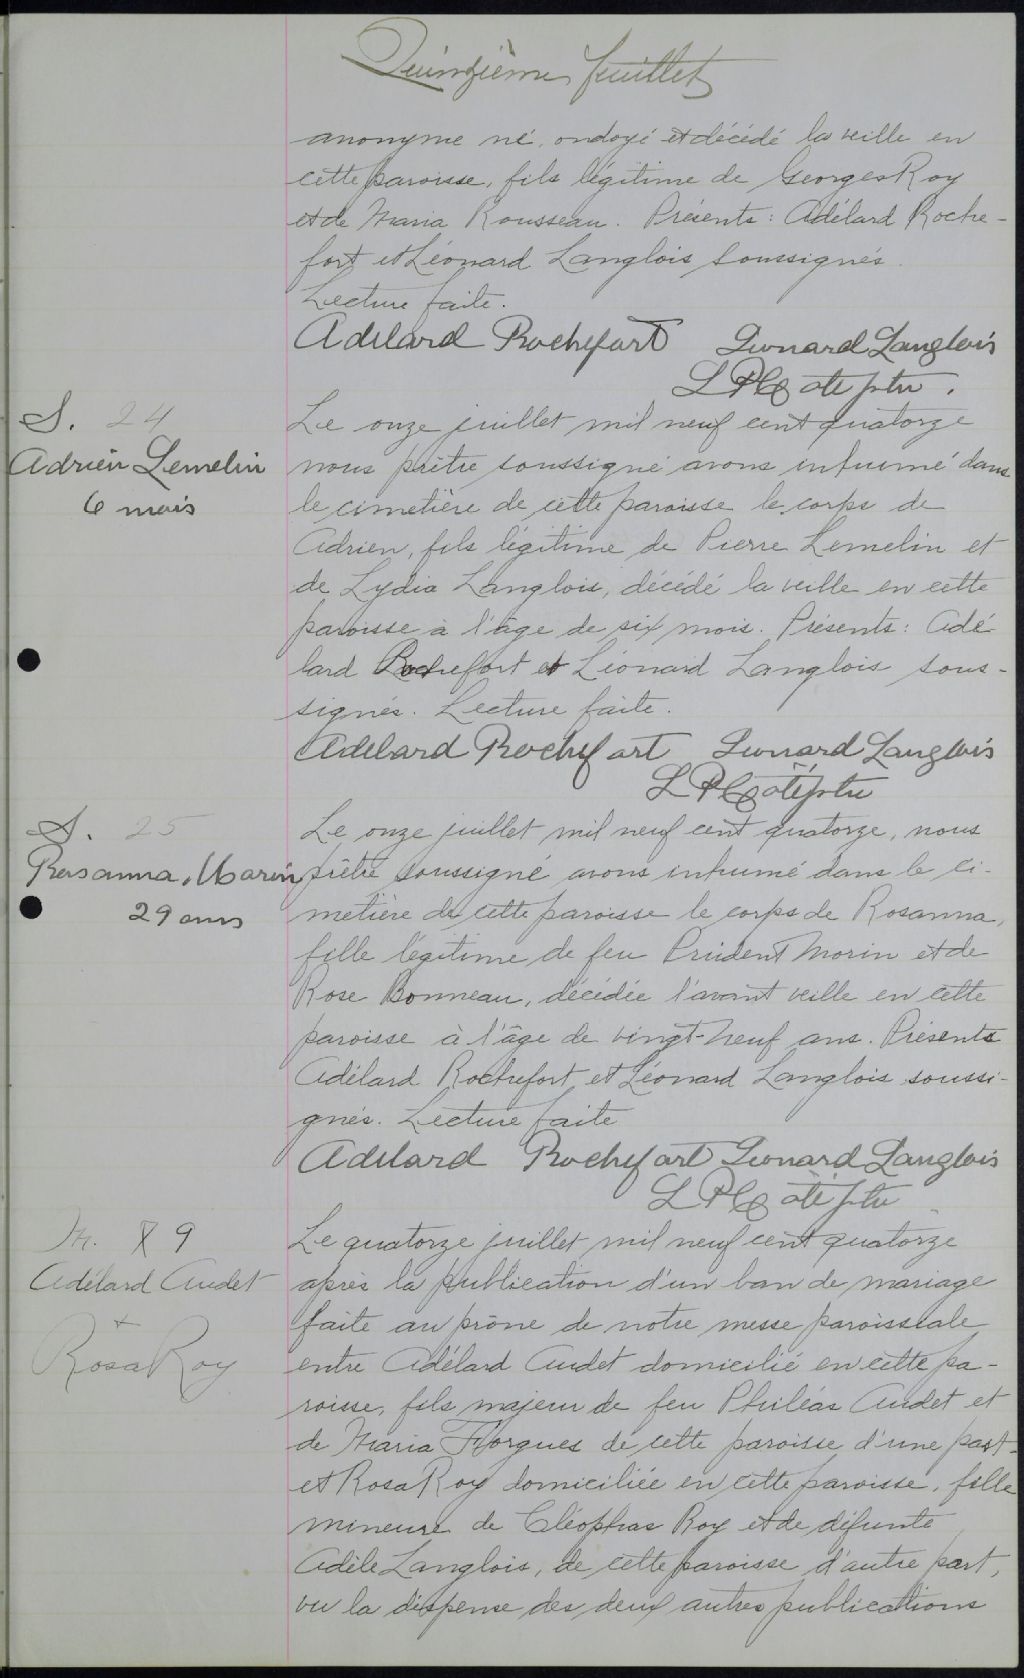 Quinzième feuillet
anonyme né, ondoyé et décédé la veille en
cette paroisse, fils légitime de Georges Roy
et de Maria Rousseau. Présents: Adélard Roche-
fort et Léonard Langlois soussignés.
Lecture faite.
Adelard Rochefort Leonard Langlois
L P Coté ptre.
S. 24
Adrien Lemelin
6 mois
Le onze juillet mil neuf cent quatorze
nous prêtre soussigné avons inhumé dans
le cimetière de cette paroisse le corps de
Adrien, fils légitime de Pierre Lemelin et
de Lydia Langlois, décédé la veille en cette
paroisse à l'âge de six mois. Présents: Adé
lard Rochefort et Léonard Langlois sous-
signés. Lecture faite.
Adelard Rochefort Leonard Langlois
L P Coté ptre
S. 25
Rosanna Morin
29 ans
Le onze juillet mil neuf cent quatorze, nous
prêtre soussigné avons inhumé dans le ci-
metière de cette paroisse le corps de Rosanna,
fille légitime de feu Prudent Morin et de
Rose Bonneau, décédée l'avant veille en cette
paroisse à l'âge de vingt-neuf ans. Présents
Adélard Rochefort et Léonard Langlois soussi-
gnés. Lecture faite
Adelard Rochefort Leonard Langlois
L P Coté ptre
M. 8 9
Adélard Audet
+
Rosa Roy
Le quatorze juillet mil neuf cent quatorze
après la publication d'un ban de mariage
faite au prône de notre messe paroissiale
entre Adélard Audet domicilié en cette pa-
roisse, fils majeur de feu Philéas Audet et
de Maria Forgues de cette paroisse d'une part-
et Rosa Roy domiciliée en cette paroisse, fille
mineure de Cléophas Roy et de défunte
Adèle Langlois, de cette paroisse d'autre part,
vu la dispense des deux autres publications